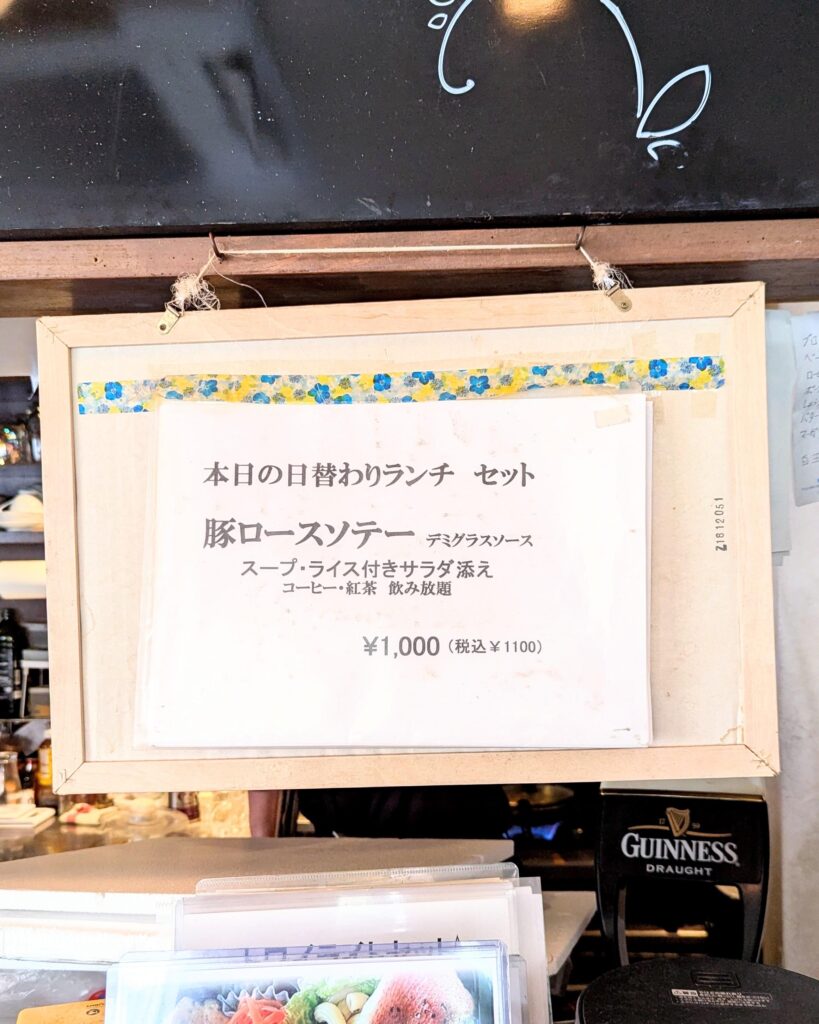 本日の日替わりランチ セット
豚ロースソテー デミグラスソース
スープ・ライス付きサラダ添え
コーヒー・紅茶 飲み放題
¥1,000(税込¥1100)
Z1812051
17 59
GUINNESS
DRAUGHT